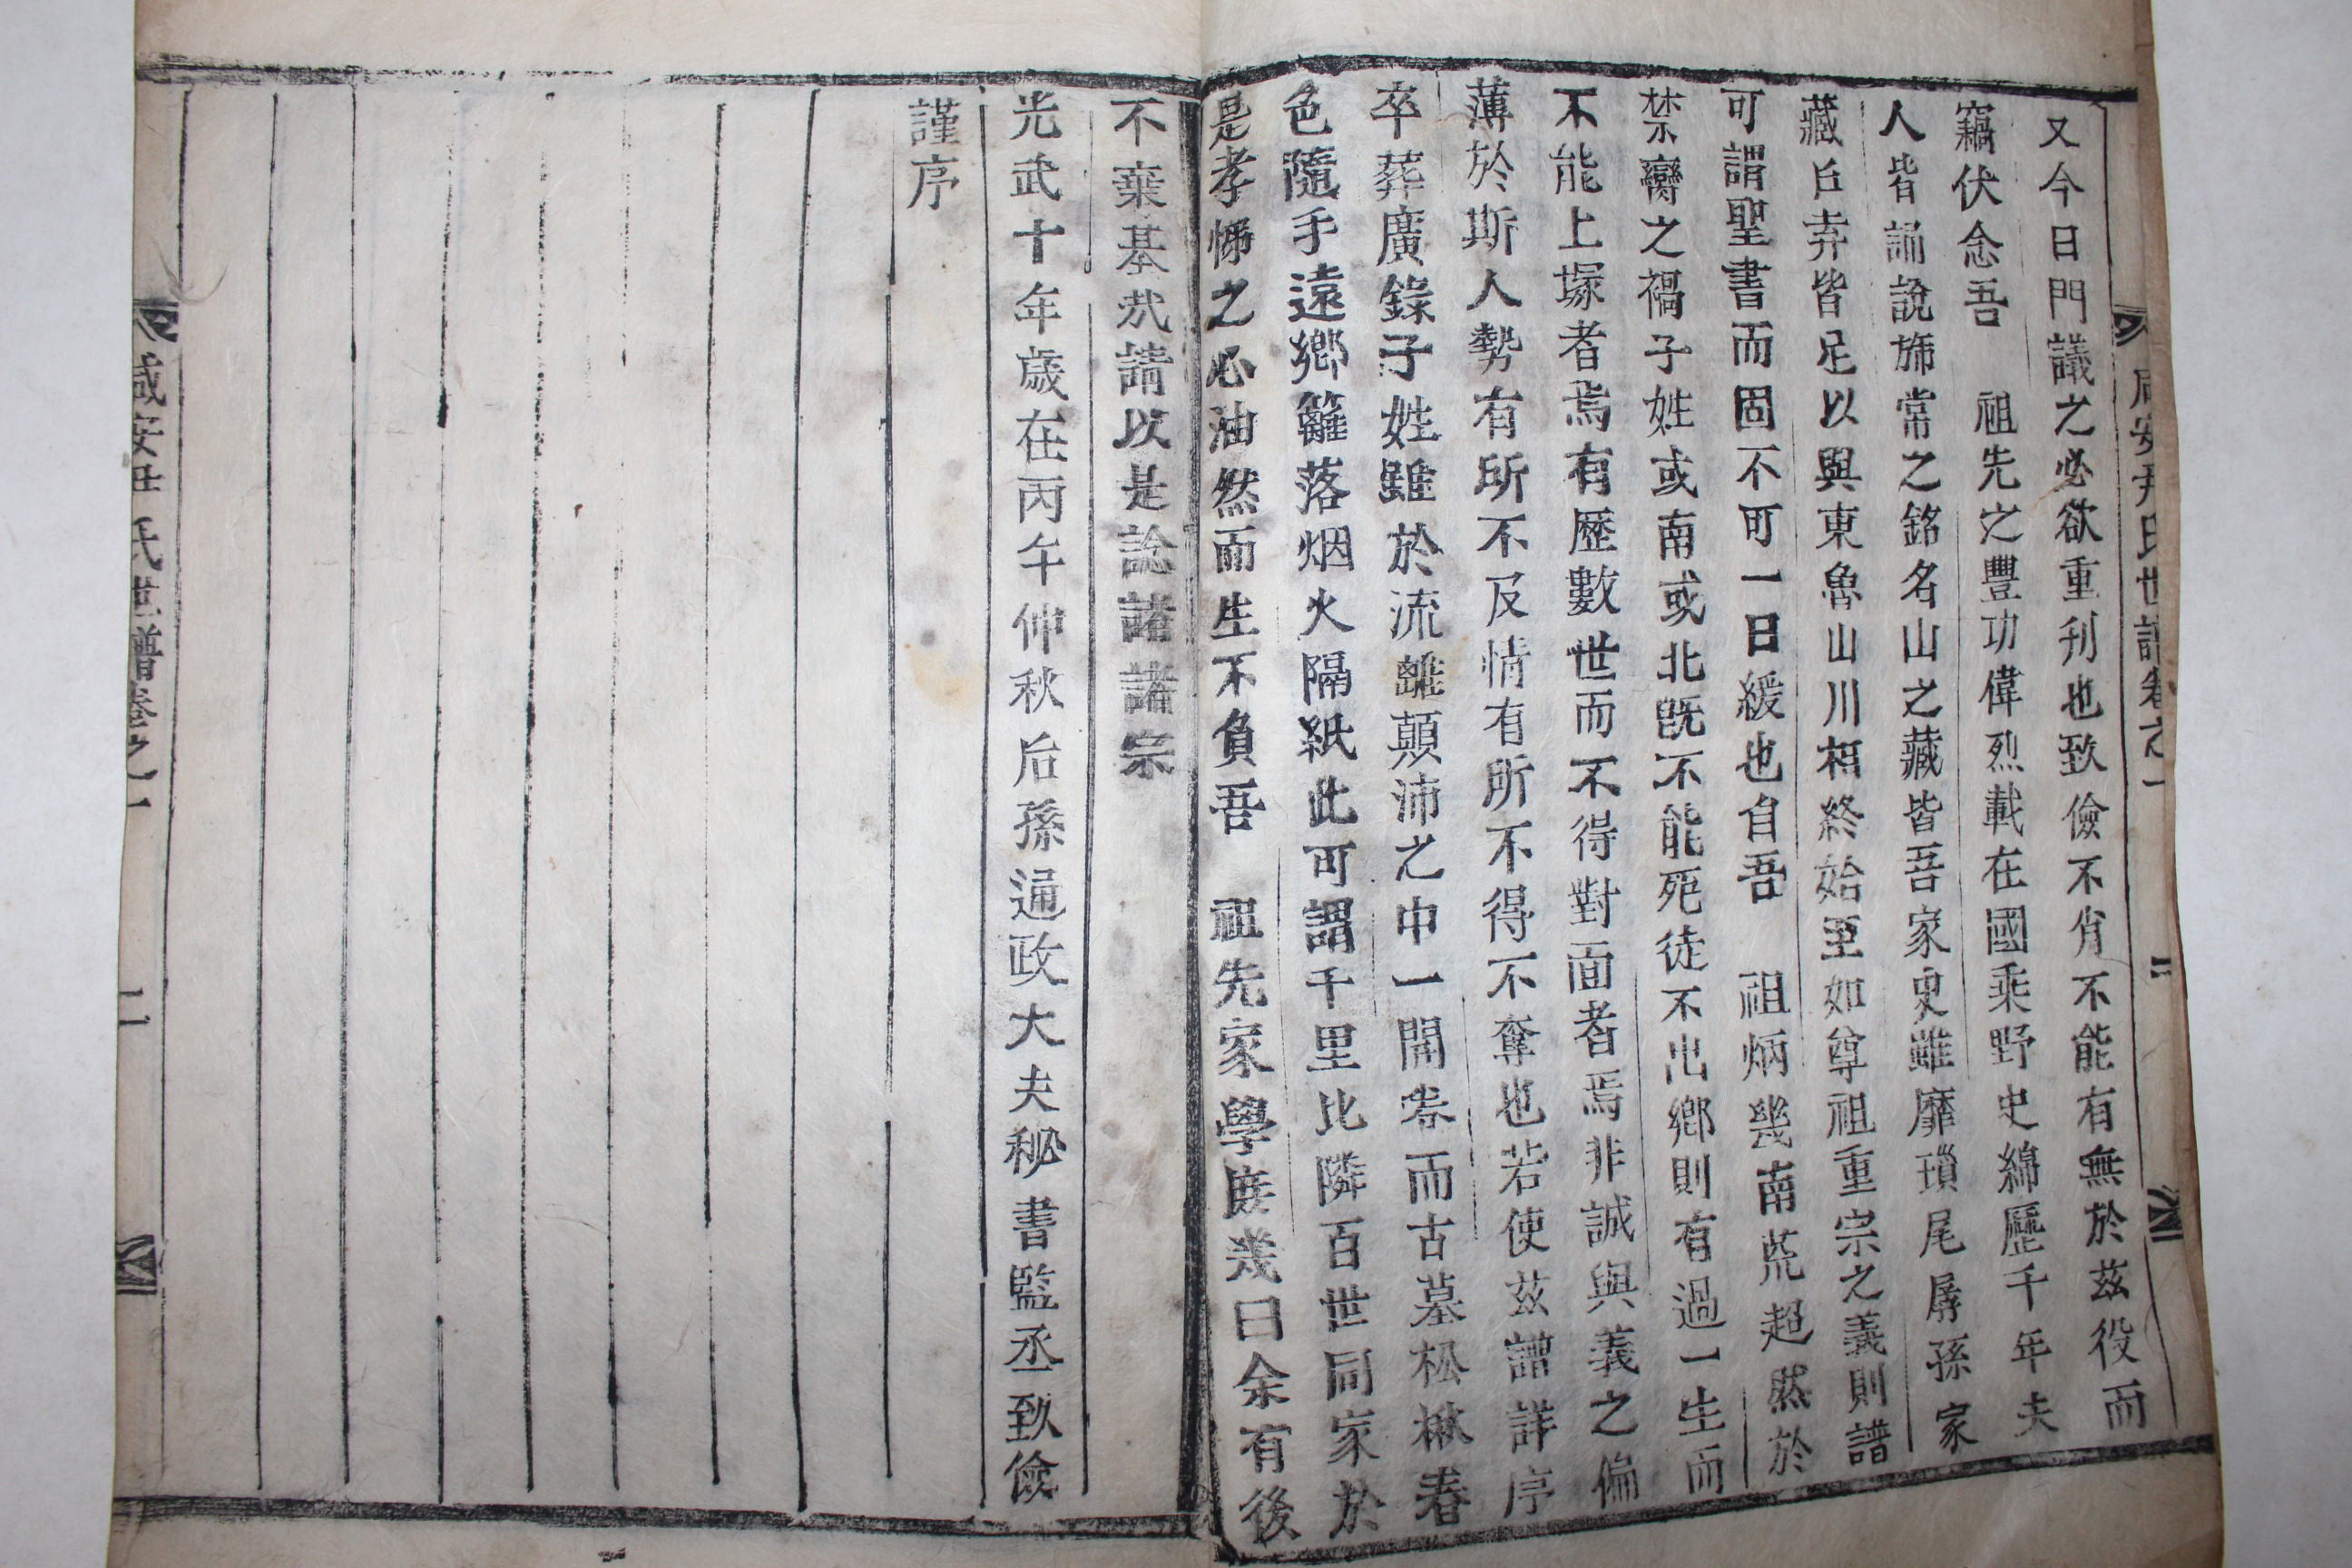 咸安尹氏世譜卷之一 二
又今日門議之必欲重刊也致儉不肖不能有無於茲役而
竊伏念吾 祖先之豐功偉烈載在國乘野史綿歷千年夫
人皆誦說旆常之銘名山之藏皆吾家史雖靡瑣尾孱孫家
藏丘弆皆足以與東魯山川相終始至如尊祖重宗之義則譜
可謂聖書而固不可一日緩也自吾 祖炳幾南荒超然於
禁臠之禍子姓或南或北旣不能死徒不出鄉則有過一生而
不能上塚者焉有歷數世而不得對面者焉非誠與義之偏
薄於斯人勢有所不及情有所不得不奪也若使茲譜詳序
卒葬廣錄子姓雖於流離顛沛之中一開卷而古墓松楸春
色隨手遠鄉籬落烟火隔紙此可謂千里比隣百世同家於
是孝悌之心油然而生不負吾 祖先家學庶幾曰余有後
不棄基㢤請以是諗諸諸宗
光武十年歲在丙午仲秋后孫通政大夫秘書監丞致儉
謹序
咸安 氏世譜卷之一 二